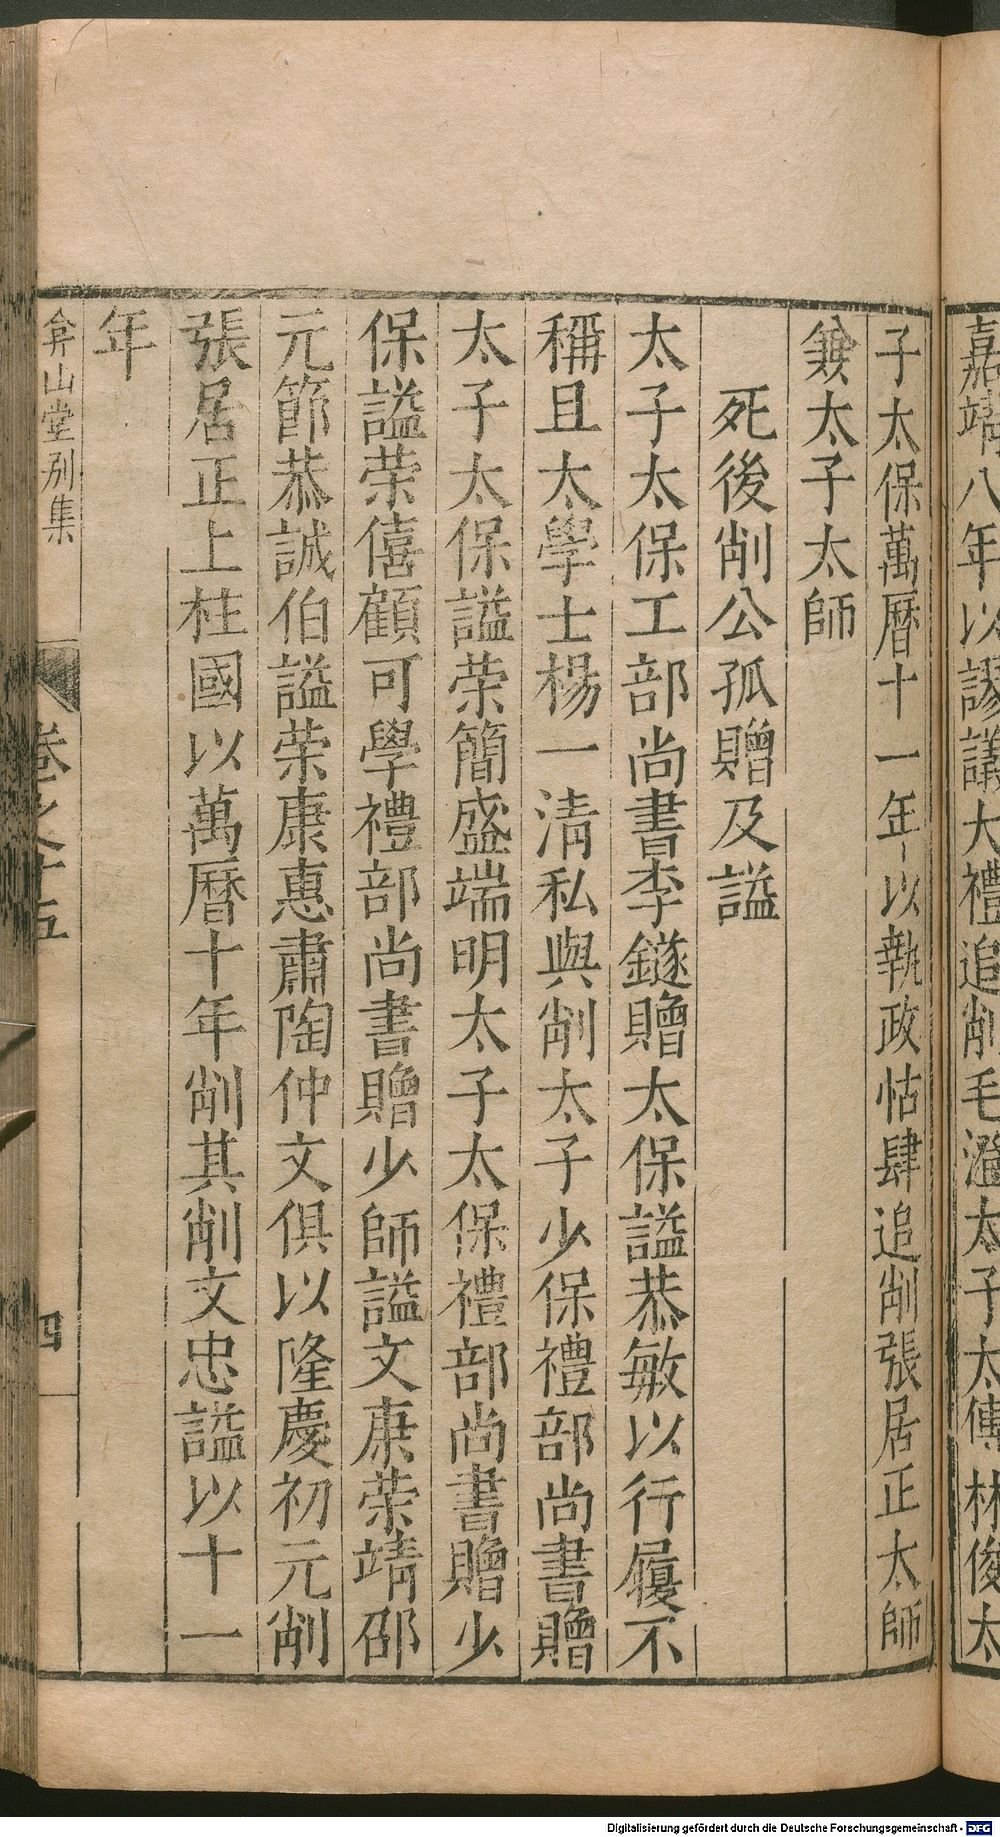 嘉靖八年以議大禮追削毛澄太子太傅林俊太
子太保萬曆十一年以執政怙肆追削張居正太師
兼太子太師
死後削公孤贈及謚
太子太保工部尚書李鐩贈太保謚恭敏以行履不
稱且太學士楊一清私與削太子少保禮部尚書贈
太子太保謚荣簡盛端明太子太保禮部尚書贈少
保謚荣僖顧可學禮部尚書贈少師謚文康荣靖邵
元節恭誠伯謚荣康惠肅陶仲文俱以隆慶初元削
張居正上柱國以萬曆十年削其削文忠謚以十一
年
弇山堂别集
卷之十五
四
Digitalisierung gefördert durch die Deutsche Forschungsgemeinschaft - DFG